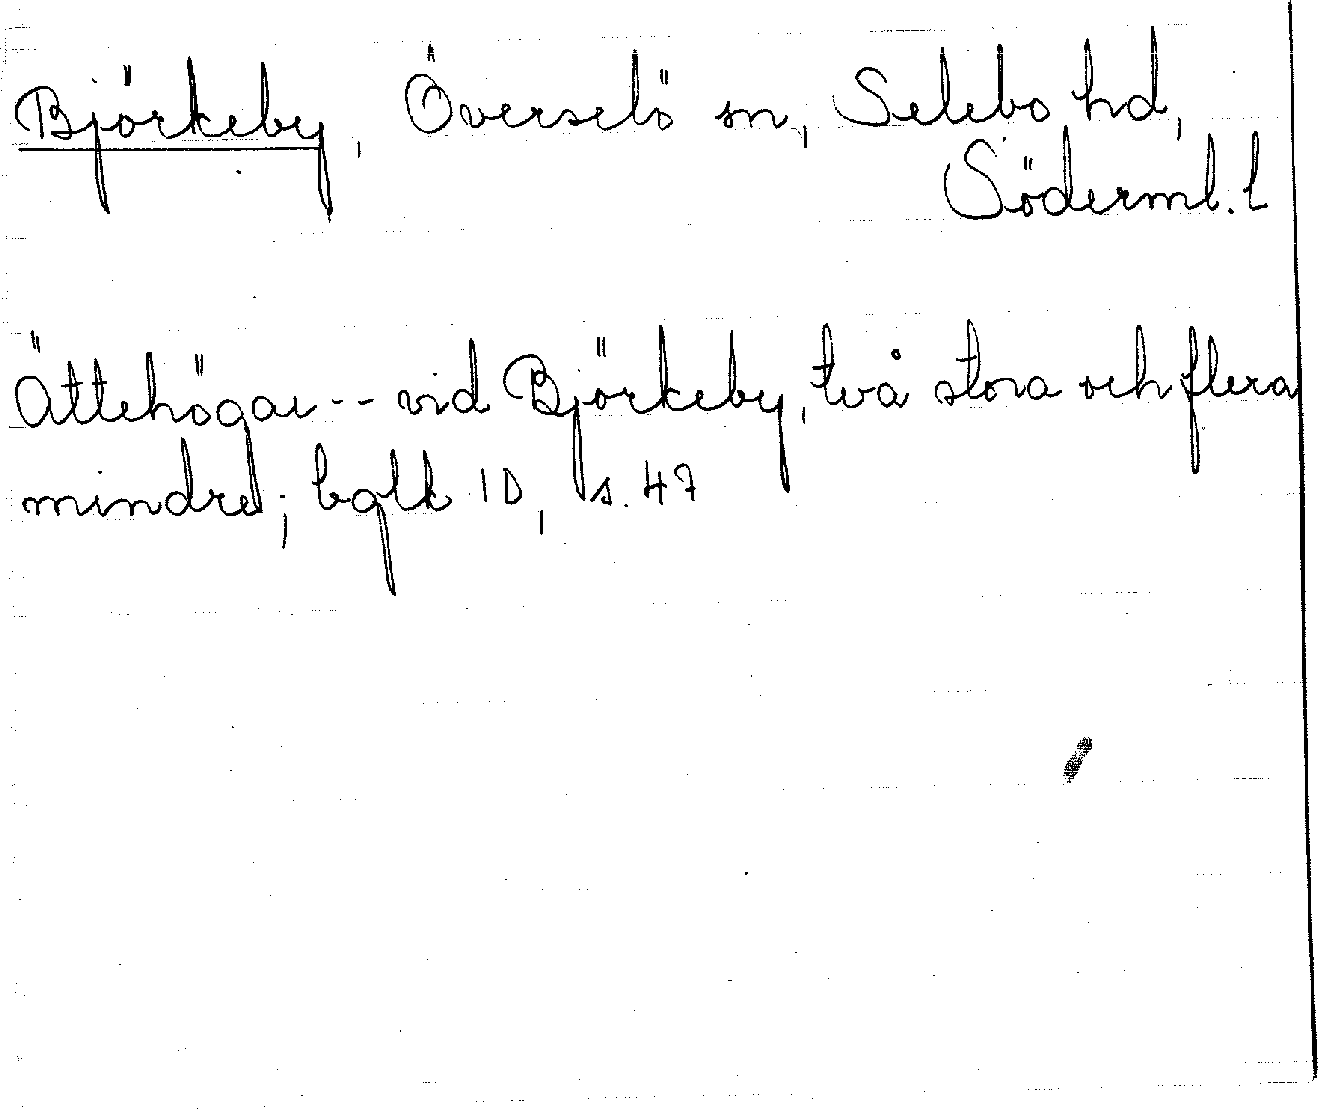 Björkeby, Överselö sn, Selebo hd,
Söderml. l
Ättehögar -- vid Björkeby, två stora och flera
mindre; bglk 1D, s. 47